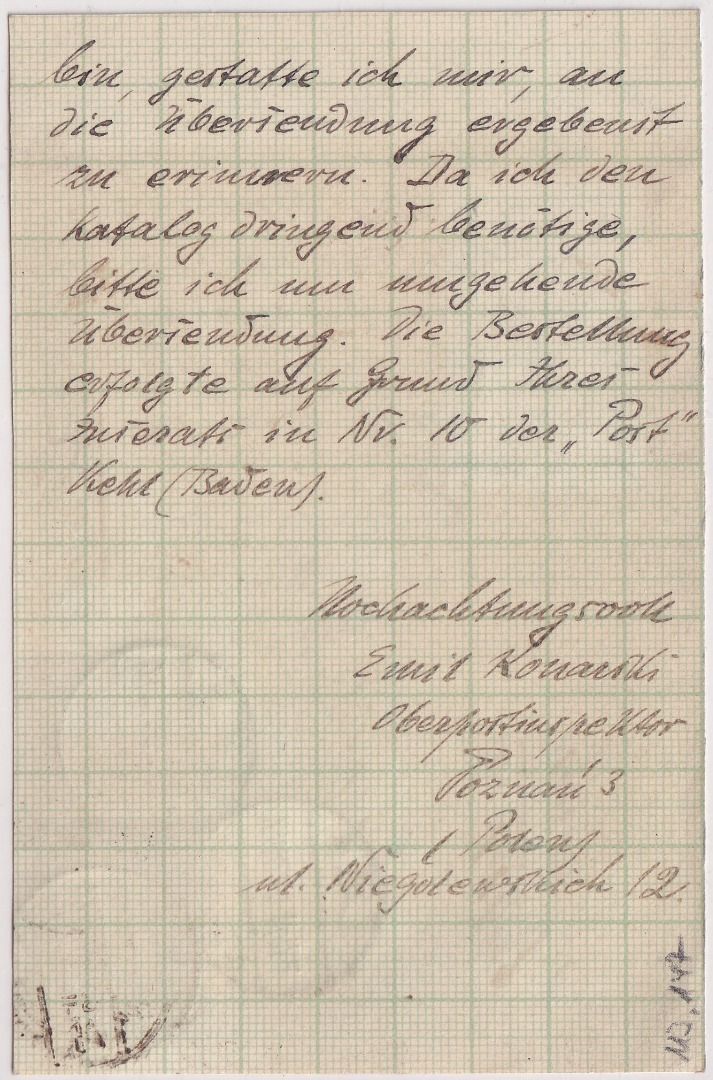 bin, gestatte ich mir, an
die Übersendung ergebenst
zu erinnern. Da ich den
Katalog dringend benötige,
bitte ich um umgehende
Übersendung. Die Bestellung
erfolgte auf Grund Ihres
Inserats in Nr. 10 der „Post"
Kehl (Baden).
Hochachtungsvoll
Emil Konarski
Oberpostinspektor
Poznań 3
(Polen)
ul. Niegolewskich 12.